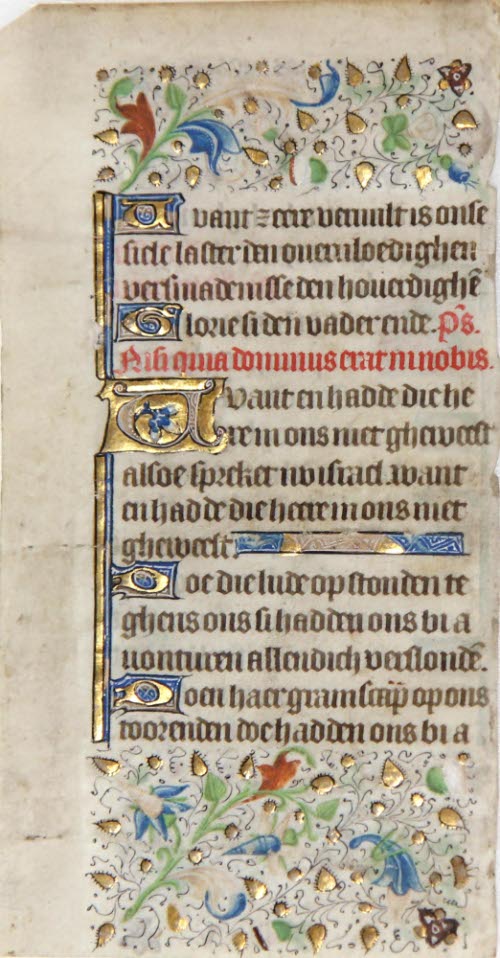 Want zeere veruult is onse
siele laster den oueruloedighen
versmadenisse den houerdighē
Glorie si den vader ende. p̄s.
Nisi quia dominus erat in nobis.
Want en hadde die he
re in ons niet gheweest
alsoe sprcket nv israel. want
en hadde die heere in ons niet
gheweest.
Doe die lude op stonden te
ghens ons si hadden ons bi a
uonturen allendich verslondē.
Doen haer gramscap op ons
toorenden doe hadden ons bi a